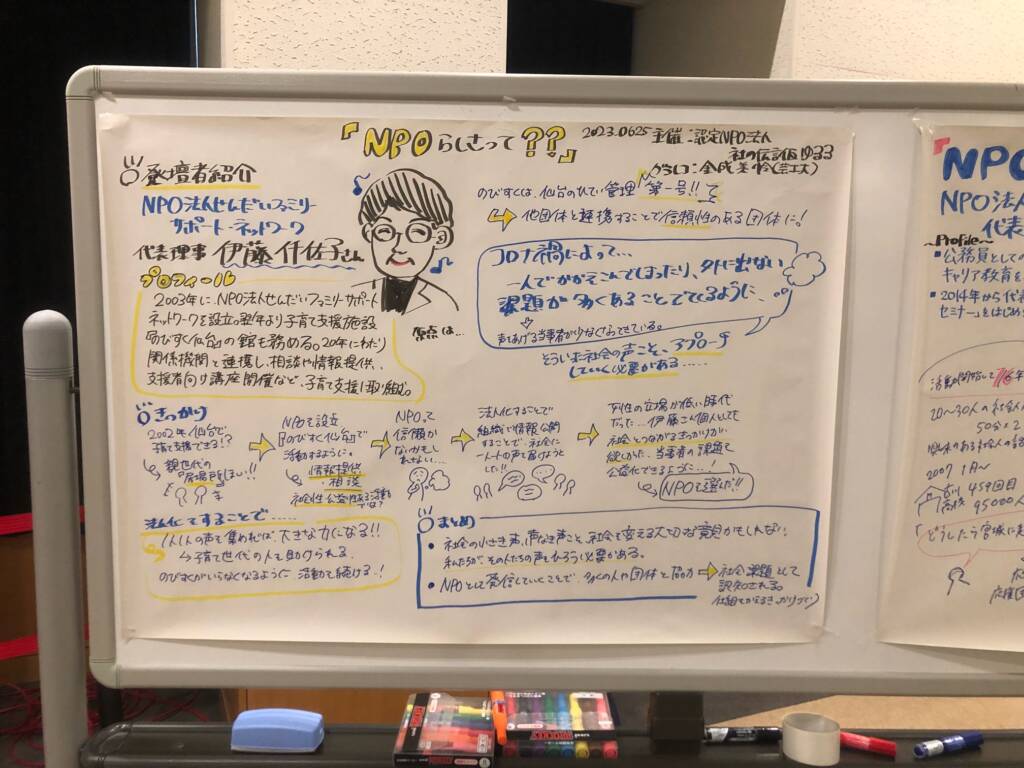 「NPOらしさって??」
2023.06.25 主催:認定NPO法人
杜の伝言板ゆるる
グラレコ:
登壇者紹介
NPO法人せんだいファミリー
サポート・ネットワーク
代表理事 伊藤仟佐子さん
プロフィール
2003年に、NPO法人せんだいファミリーサポート
ネットワークを設立。翌年より子育て支援施設
「のびすく仙台」の館長を務める。20年にわたり
関係機関と連携し、相談や情報提供、
支援者向け講座開催など、子育て支援に取り組む。
原点は…
のびすくは、仙台の 管理 第一号!! で
他団体と連携することで信頼性のある団体に!
コロナ禍によって…
一人でかかえこんでしまったり、外に出ない
課題が多くあることで てくるように…
声をあげる当事者が少なくなってきている。
そういった社会の声こそ、アプローチ
していく必要がある……
きっかけ
2002年 仙台で
子育て支援できる!?
親世代の
「居場所ほしい!!
NPOを設立
『のびすく仙台』で
活動するように。
情報提供
・相談
社会性・公益性ある活動
では?
NPOって
信頼が
ないかもし
れない…
法人化することで
組織で情報公開
することで、社会に
一人一人の声を届けようと
した!!
女性の立場が低い時代
だった…伊藤さん個人としても
社会とつながるきっかけが
欲しかった。当事者の課題を
公益化できるように…!
NPOを選んだ!!
法人化することで……
1人1人の声も集めれば、大きな力になる!!
→子育て世代の人を助けられる
のびすくがいらなくなるように 活動を続ける!
まとめ
• 社会の小さき声、声なき声こそ、社会を変える大切な資源かもしれない。
私たちが、その人たちの声をひろう必要がある。
• NPOとして発信していくことで、多くの人や団体と協力 → 社会課題として
認知される。
仕組をかえるきっかけづくり
NPO
NPO法人
代表
~Profile~
■公務員としての
キャリア教育を
■2014年から代表
セミナー」をはじめ
活動開始して 16年
20~30人の社会人
50分×2
興味のある社会人の話
2007 1月~
459回目
高校 95000人
「どうしたら宮城に